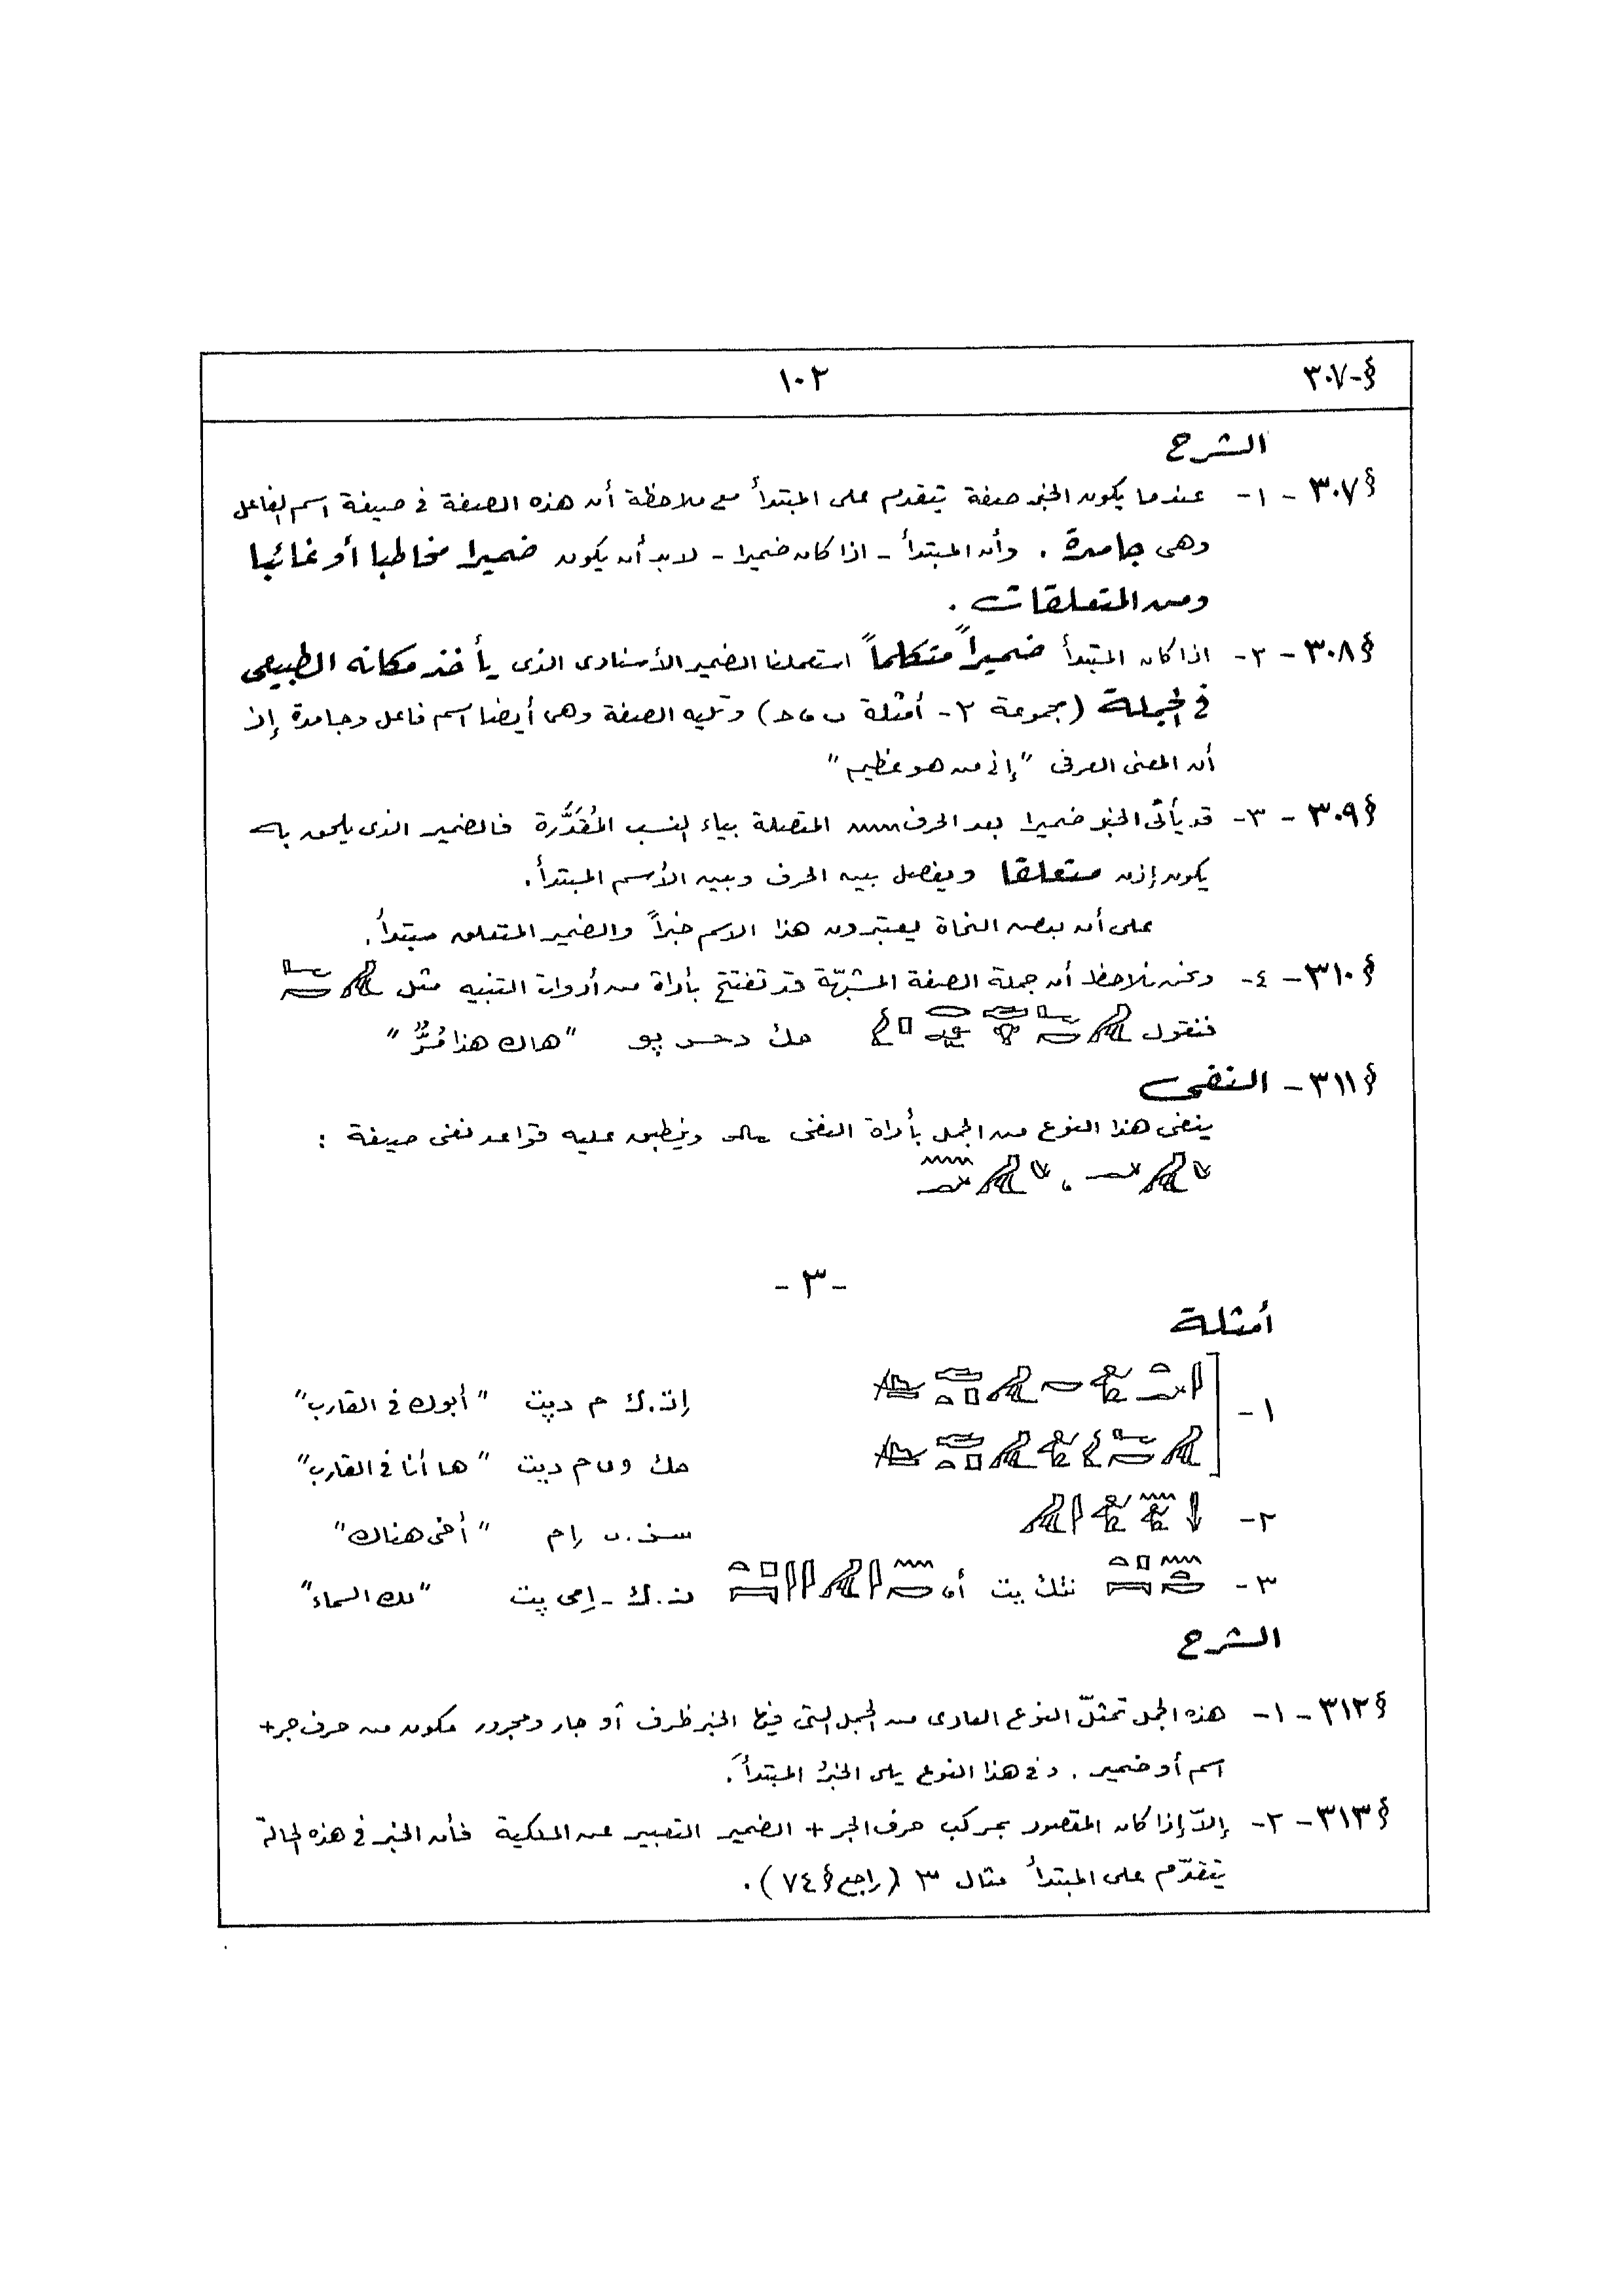 §-٣٠٧ ١٠٢
الشرح
§٣٠٧ - ١- عندما يكون الخبر صفة تتقدم على المبتدأ مع ملاحظة أن هذه الصفة فى صيغة اسم الفاعل
وهى جامدة . وأن المبتدأ - اذا كان ضميرا - لابد أن يكون ضميرا مخاطبا أو غائبا
ومن المتعلقات .
§٣٠٨ - ٢- اذا كان المبتدأ ضميراً متكلماً استعملنا الضمير الأسنادى الذى يأخذ مكانه الطبيعى
فى الجملة (مجموعة ٢- أمثلة ب، ح) وتليه الصفة وهى أيضا اسم فاعل وجامدة إذ
أن المعنى الحرفى "إنى من هو عظيم"
§٣٠٩ - ٣- قد يأتى الخبر ضميرا بعد الحرف 𓈖 المتصلة بياء النسب المُقَدَّرة فالضمير الذى يلحق به
يكون إذن متعلقا ويفصل بين الحرف وبين الأسم المبتدأ.
على أن بعض النحاة يعتبرون هذا الاسم خبراً والضمير المتعلق مبتدأ.
§٣١٠ - ٤- ونحن نلاحظ أن جملة الصفة المشبّهة قد تفتتح بأداة من أدوات التنبيه مثل
فنقول حك دحس پو "هاك هذا مُرٌّ"
§٣١١ - النفى
ينفى هذا النوع من الجمل بأداة النفى وينطبق عليه قواعد نفى صيغة :
-٣-
أمثلة
١- إت.ك م دپت "أبوك فى القارب"
حك وى م دپت "ها أنا فى القارب"
٢- سن.ى إم "أخى هناك"
٣- نتك پت أو ن.ك - إمى پت "لك السماء"
الشرح
§٣١٢ - ١- هذه الجمل تمثّل النوع العادى من الجمل التى فيها الخبر ظرف أو جار ومجرور مكون من حرف جر+
اسم أو ضمير . وفى هذا النوع يلى الخبرُ المبتدأَ.
§٣١٣ - ٢- إلاّ إذا كان المقصود بمركب حرف الجر + الضمير التعبير عن الملكية فأن الخبر فى هذه الحالة
يتقدّم على المبتدأ مثال ٣ (راجع § ٧٤).